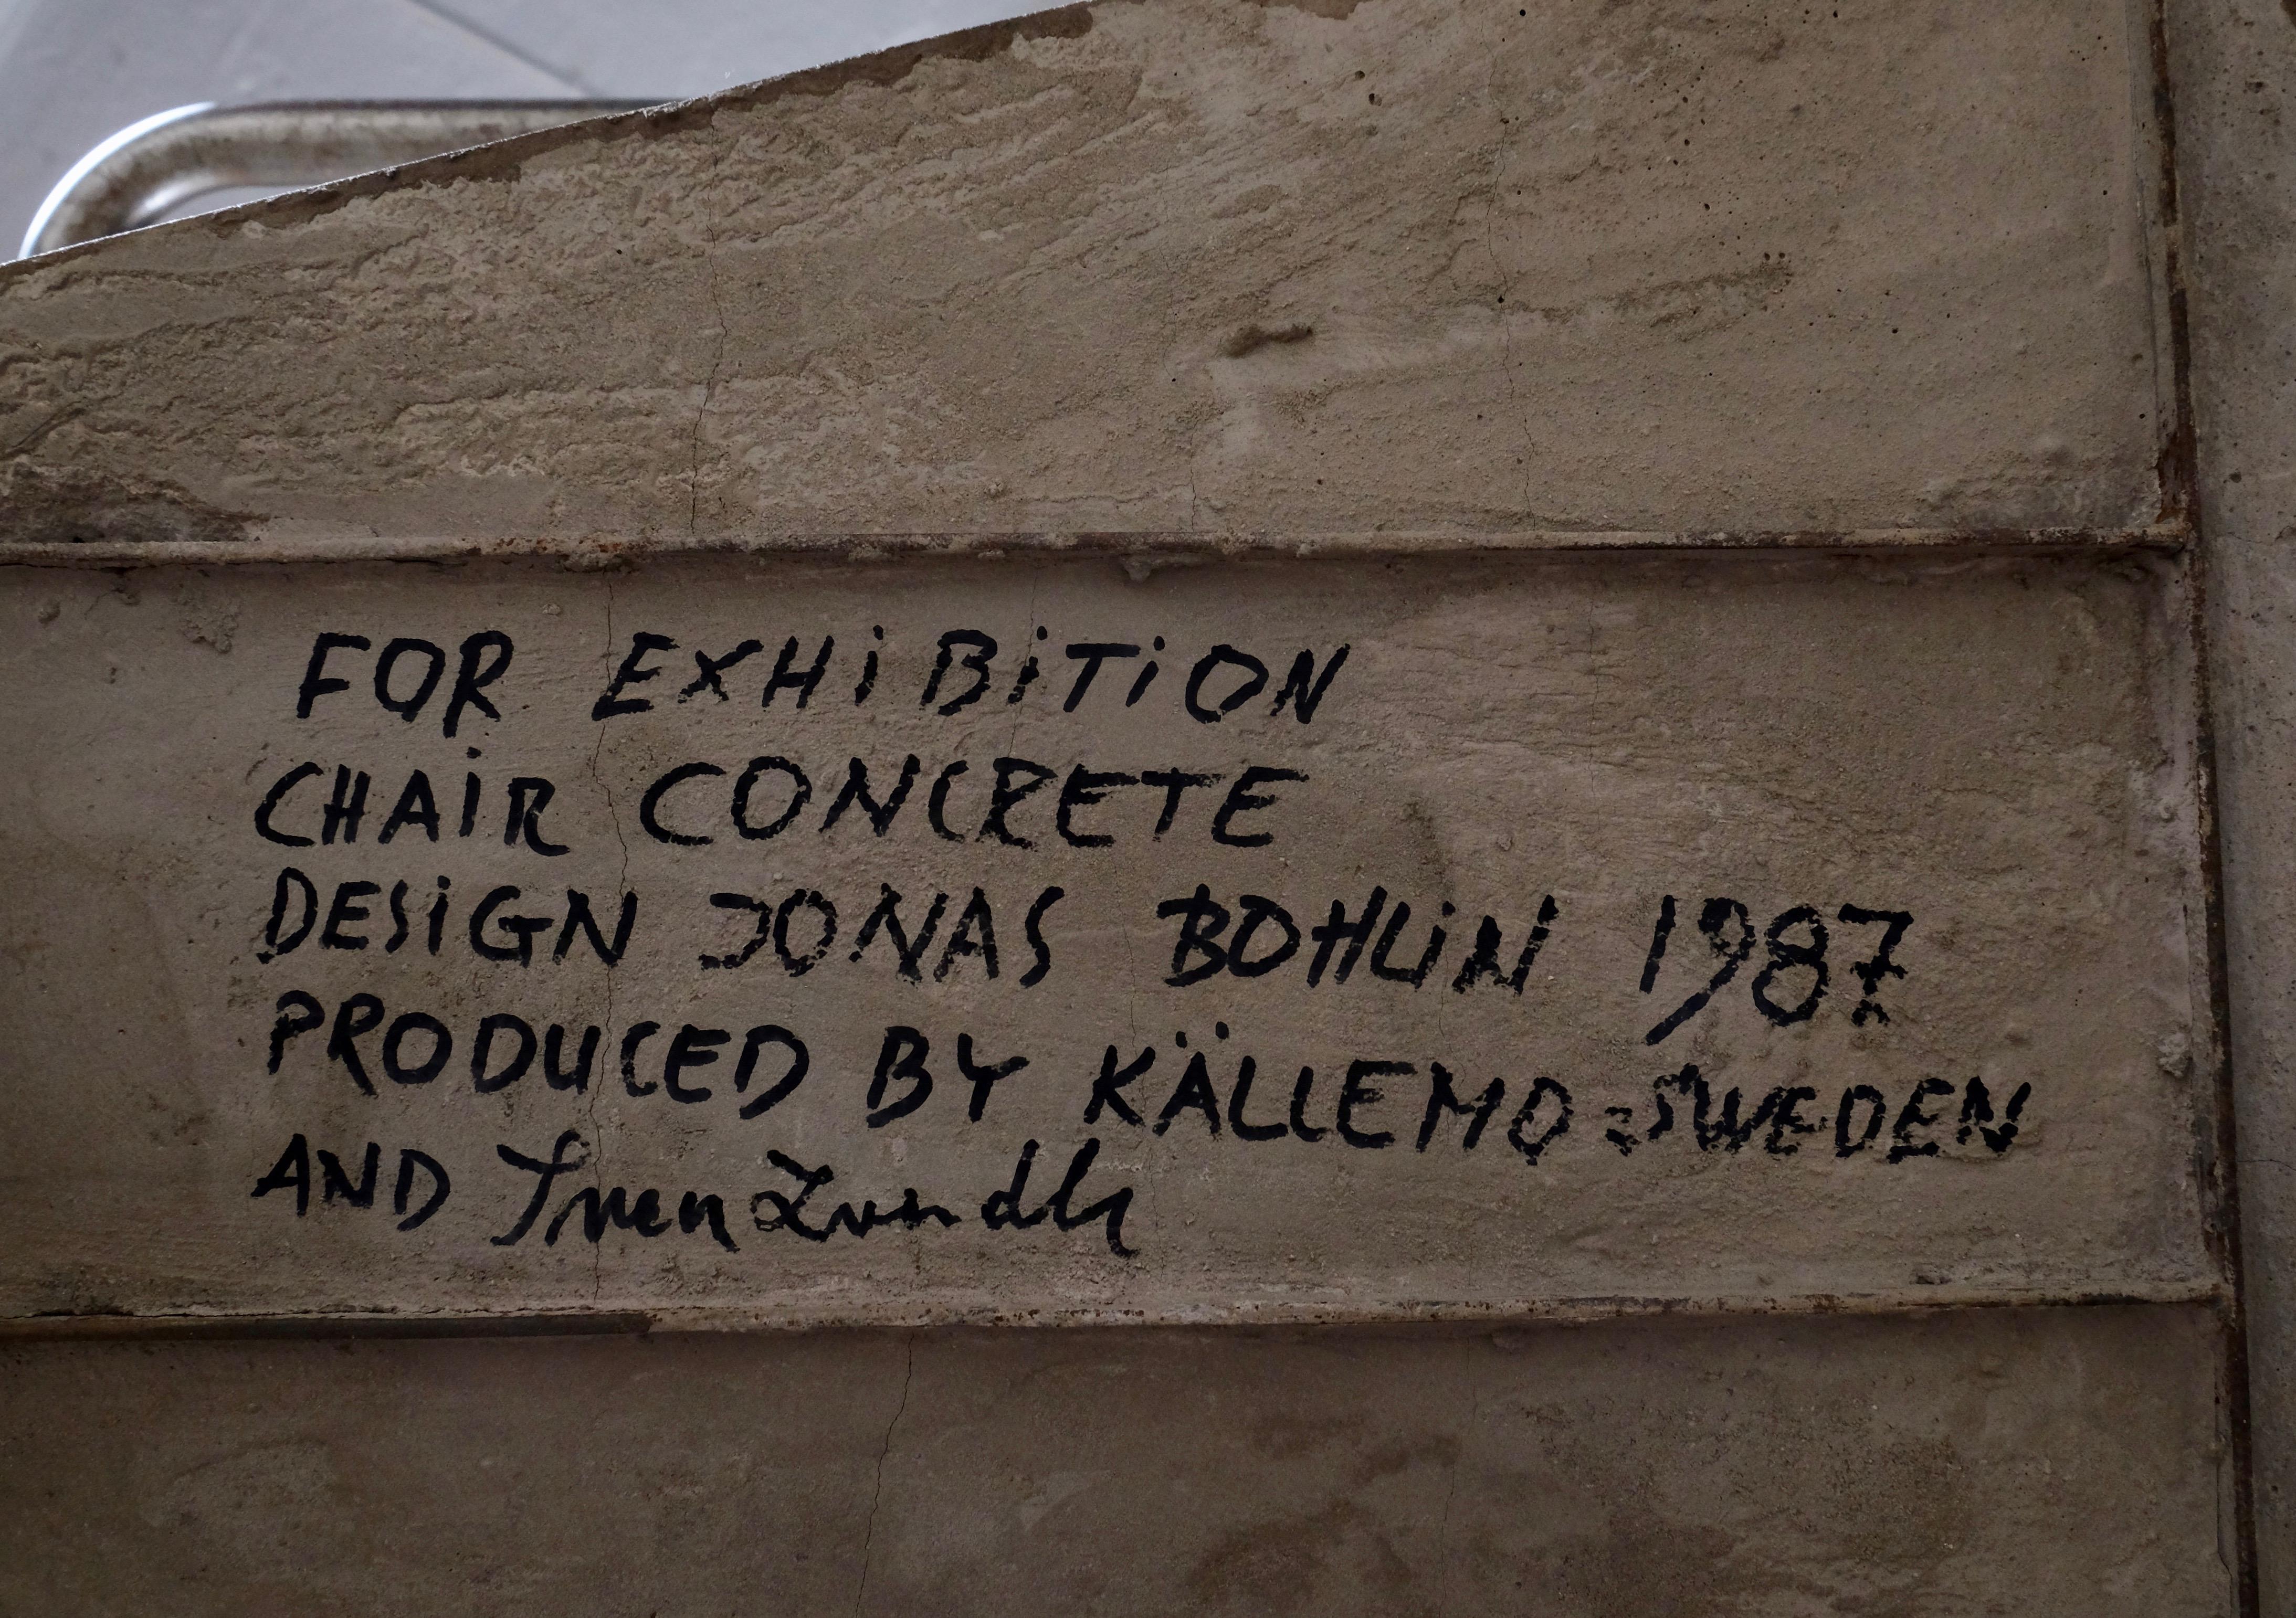 FOR EXHiBiTiON
CHAiR CONCRETE
DESiGN JONAS BOHLiN 1987
PRODUCED BY KÄLLEMO SWEDEN
AND Sven Lundh